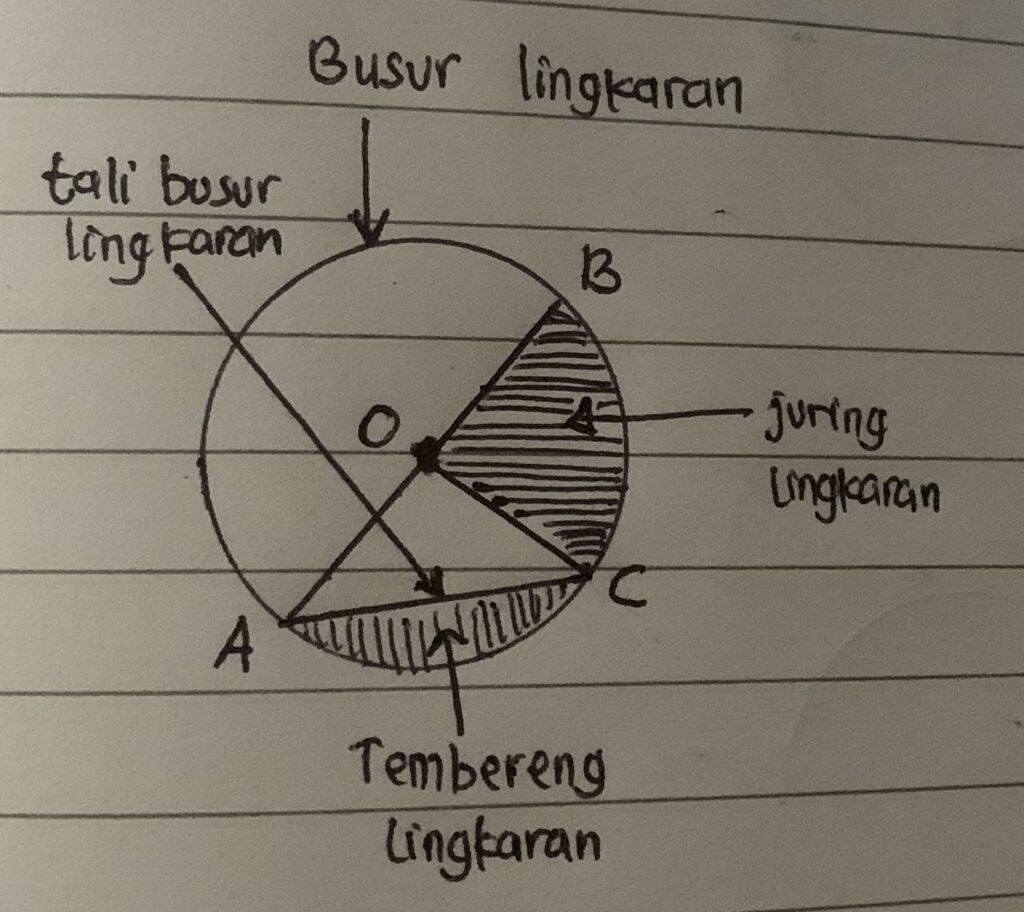 Busur lingkaran
tali busur
lingkaran
B
O
juring
lingkaran
C
A
Tembereng
lingkaran